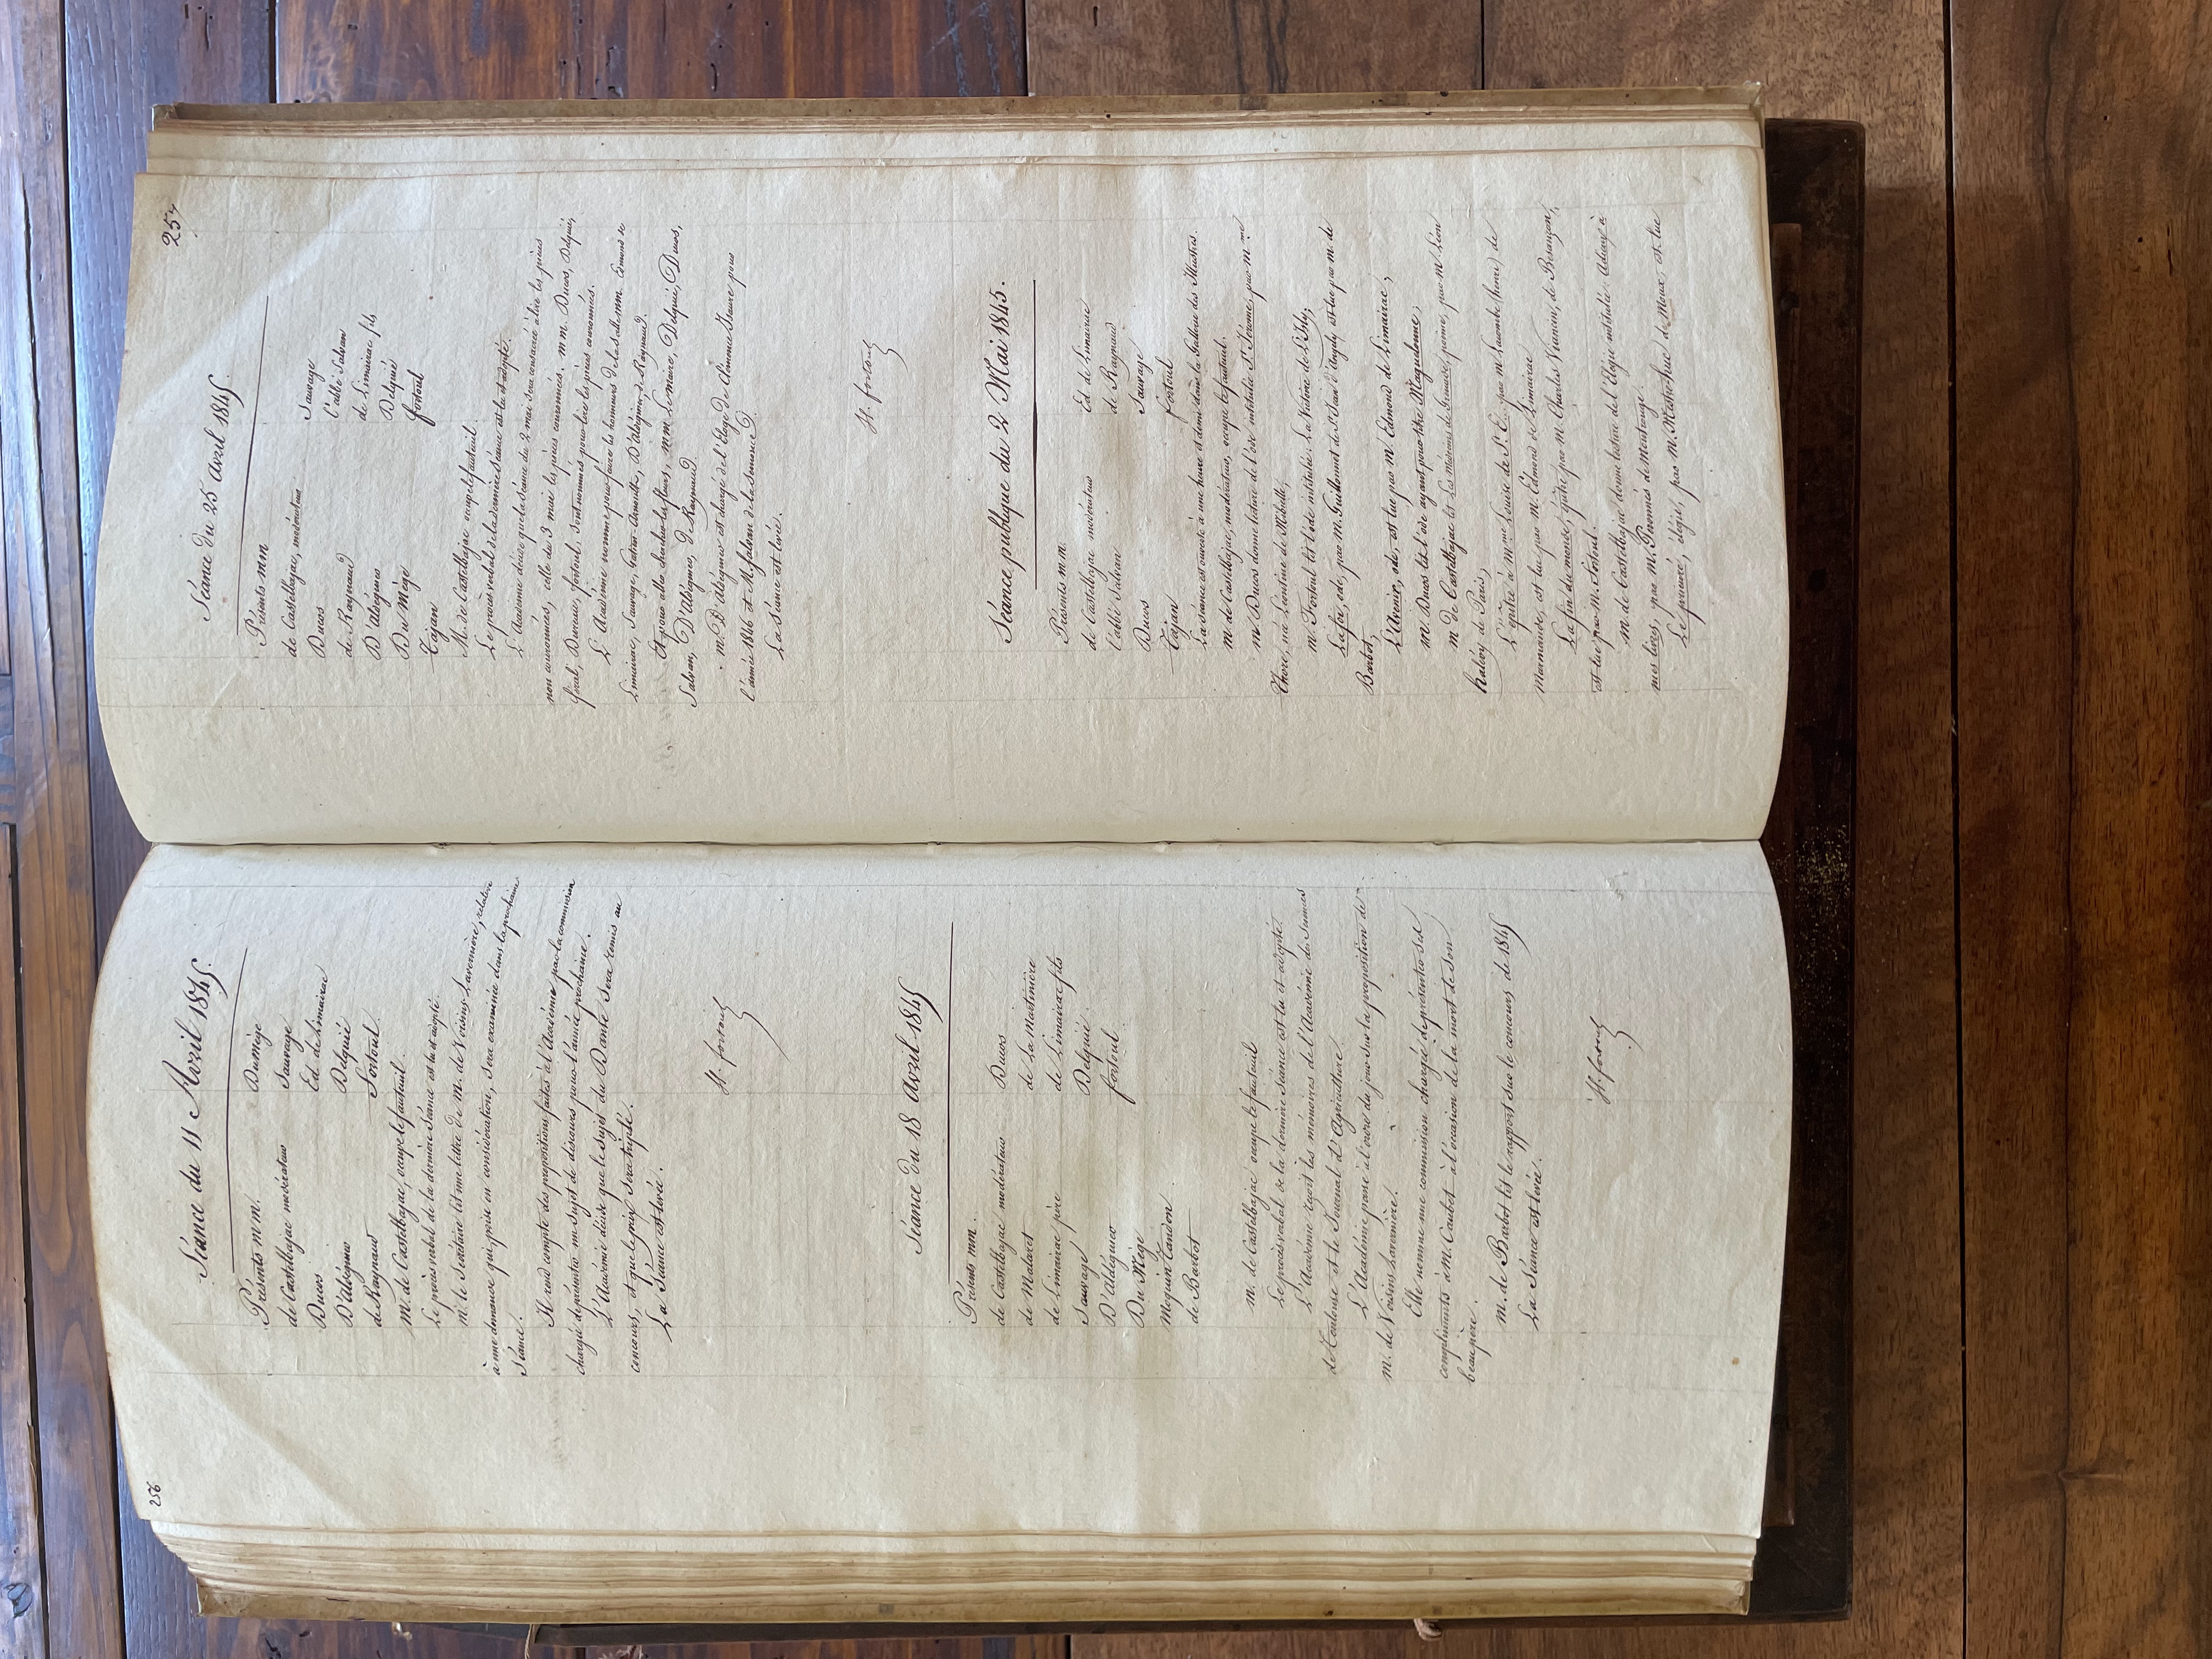 256
Séance du 11 Avril 1845.
Présents mm.
de Castelbajac modérateur
Ducos
D'aldéguier
de Raynaud
Dumège
Sauvage
Ed. de Limairac
Delquié
Fortoul.
M. de Castelbajac, occupe le fauteuil.
Le procès verbal de la dernière Séance est lu et adopté.
M. le Secrétaire lit une lettre de M. de Voisins Lavernière, relative
à une demande qui, prise en considération, sera examinée dans la prochaine
Séance.
Il rend compte des propositions faites à l'Académie par la commission
chargée de présenter un Sujet de discours pour l'année prochaine.
L'Académie décide que le Sujet du Dante Sera remis au
concours, et que le prix Sera triplé.
La Séance est levée.
H. fortoul
Séance du 18 avril 1845
Présents mm.
de Castelbajac modérateur
de Malaret
de Limairac père
Sauvage
D'aldéguier
Du Mège
Moquin Tandon
de Barbot
Ducos
de la Martinière
de Limairac fils
Delquié.
fortoul.
m. de Castelbajac occupe le fauteuil
Le procès verbal de la dernière Séance est lu et adopté.
L'Académie reçoit les mémoires de l'Académie des Sciences
de Toulouse et le Journal d'Agriculture.
L'Académie passe à l'ordre du jour sur la proposition de
M. de Voisins Lavernière.
Elle nomme une commission chargée de présenter ses
compliments à M. Caubet à l'occasion de la mort de son
beau père.
M. de Barbot lit le rapport sur le concours de 1845
La Séance est levée.
H. fortoul
257
Séance du 25 avril 1845.
Présents mm
de Castelbajac, modérateur
Ducos
de Raynaud
D'aldéguier
Du Mège
Tajan
Sauvage
l'abbé Salvan
de Limairac fils
Delquié
fortoul
M. de Castelbajac occupe le fauteuil.
Le procès verbal de la dernière séance est lu et adopté.
L'Académie décide que la séance du 2 mai sera consacrée à lire les pièces
non couronnées, celle du 3 mai les pièces couronnées. MM. Ducos, Delquié,
féral, fortoul, sont nommés pour lire les pièces couronnées.
L'Académie nomme pour faire les honneurs de la salle mm. Edmond de
Limairac, Sauvage, D'aldéguier, de Raynaud.
Et pour aller chercher les fleurs, MM. Lemaire, Delquié, Ducos,
Salvan, D'aldéguier, de Raynaud.
M. D'aldéguier est chargé de l'Eloge de Clémence Isaure pour
l'année 1846 et M. Salvan de la Semonce.
La Séance est levée.
H. fortoul
Séance publique du 2 Mai 1845.
Présents m.m.
de Castelbajac modérateur
l'abbé Salvan
Ducos
Tajan
Ed. de Limairac
de Raynaud
Sauvage
fortoul
La séance est ouverte à une heure et demie dans la Gallerie des Illustres.
M. de Castelbajac, modérateur, occupe le fauteuil.
M. Ducos donne lecture de l'ode intitulée St Jérome, par Mme
Thore, née Léontine de Mibielle;
M. Fortoul lit l'ode intitulée: La Victoire de l'Isly,
La foi, ode, par M. Guillonnet de St Jean d'Angely est lue par M. de
Barbot,
L'Avenir, ode, est lue par M. Edmond de Limairac,
M. Ducos lit l'ode ayant pour titre Maguelonne,
M. de Castelbajac lit Les Médecins de Grenade, poème, par M. Léon
Halévy de Paris,
L'épitre à Mme Louise de S. E. par M. Lacombe (henri) de
Marmande, est lu par M. Edmond de Limairac
La fin du monde, épitre par M. Charles Viancin, de Besançon,
est lue par M. fortoul.
M. de Castelbajac donne lecture de l'Elégie intitulée: Adieux à
mes livres, par M. de Montrouge.
Le prieuré, élégie, par M. de Moux, est lue